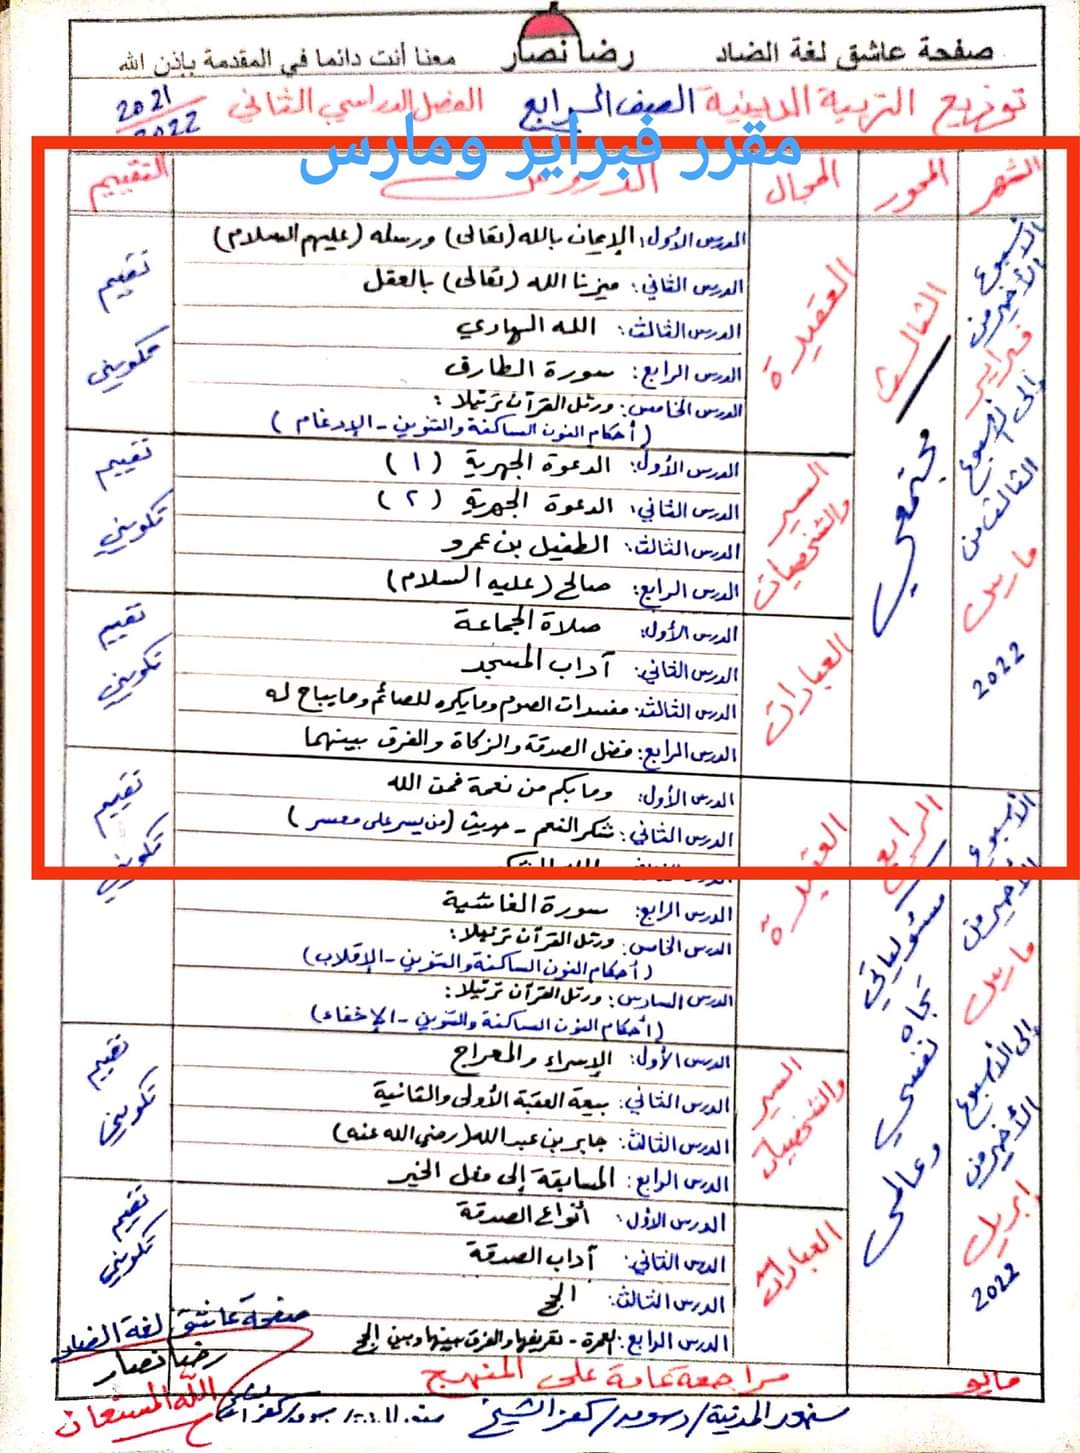 صفحة عاشق لغة الضاد رضا نصار معنا أنت دائما في المقدمة بإذن الله
توزيع التربية الدينية الصف الرابع الفصل الدراسي الثاني 2021/2022
مقرر فبراير ومارس
الشهر المحور المجال الدروس التقييم
الأسبوع الأخير من فبراير إلى الأسبوع الثالث من مارس 2022
الثالث
مجتمعي
العقيدة
الدرس الأول: الإيمان بالله (تعالى) ورسله (عليهم السلام)
الدرس الثاني: ميزنا الله (تعالى) بالعقل
الدرس الثالث: الله الهادي
الدرس الرابع: سورة الطارق
الدرس الخامس: ورتل القرآن ترتيلا:
(أحكام النون الساكنة والتنوين - الإدغام)
تقييم تكويني
السير والشخصيات
الدرس الأول: الدعوة الجهرية (١)
الدرس الثاني: الدعوة الجهرية (٢)
الدرس الثالث: الطفيل بن عمرو
الدرس الرابع: صالح (عليه السلام)
تقييم تكويني
العبادات
الدرس الأول: صلاة الجماعة
الدرس الثاني: آداب المسجد
الدرس الثالث: مفسدات الصوم ومايكره للصائم ومايباح له
الدرس الرابع: فضل الصدقة والزكاة والفرق بينهما
تقييم تكويني
الأسبوع الأخير من مارس إلى الأسبوع الأخير من ابريل 2022
الرابع
مسئولياتي تجاه نفسي وعالمي
العقيدة
الدرس الأول: ومابكم من نعمة فمن الله
الدرس الثاني: شكر النعم - حديث (من يسر على معسر)
الدرس الرابع: سورة الغاشية
الدرس الخامس: ورتل القرآن ترتيلا:
(أحكام النون الساكنة والتنوين - الإقلاب)
الدرس السادس: ورتل القرآن ترتيلا:
(أحكام النون الساكنة والتنوين - الإخفاء)
تقييم تكويني
السير والشخصيات
الدرس الأول: الإسراء والمعراج
الدرس الثاني: بيعة العقبة الأولى والثانية
الدرس الثالث: جابر بن عبد الله (رضي الله عنه)
الدرس الرابع: المسابقة إلى فعل الخير
تقييم تكويني
العبادات
الدرس الأول: أنواع الصدقة
الدرس الثاني: آداب الصدقة
الدرس الثالث: الحج
الدرس الرابع: العمرة - تعريفها والفرق بينها وبين الحج
تقييم تكويني
مايو مراجعة عامة على المنهج
صفحة عاشق لغة الضاد
رضا نصار
الله المستعان
سنهور المدينة / دسوق / كفر الشيخ